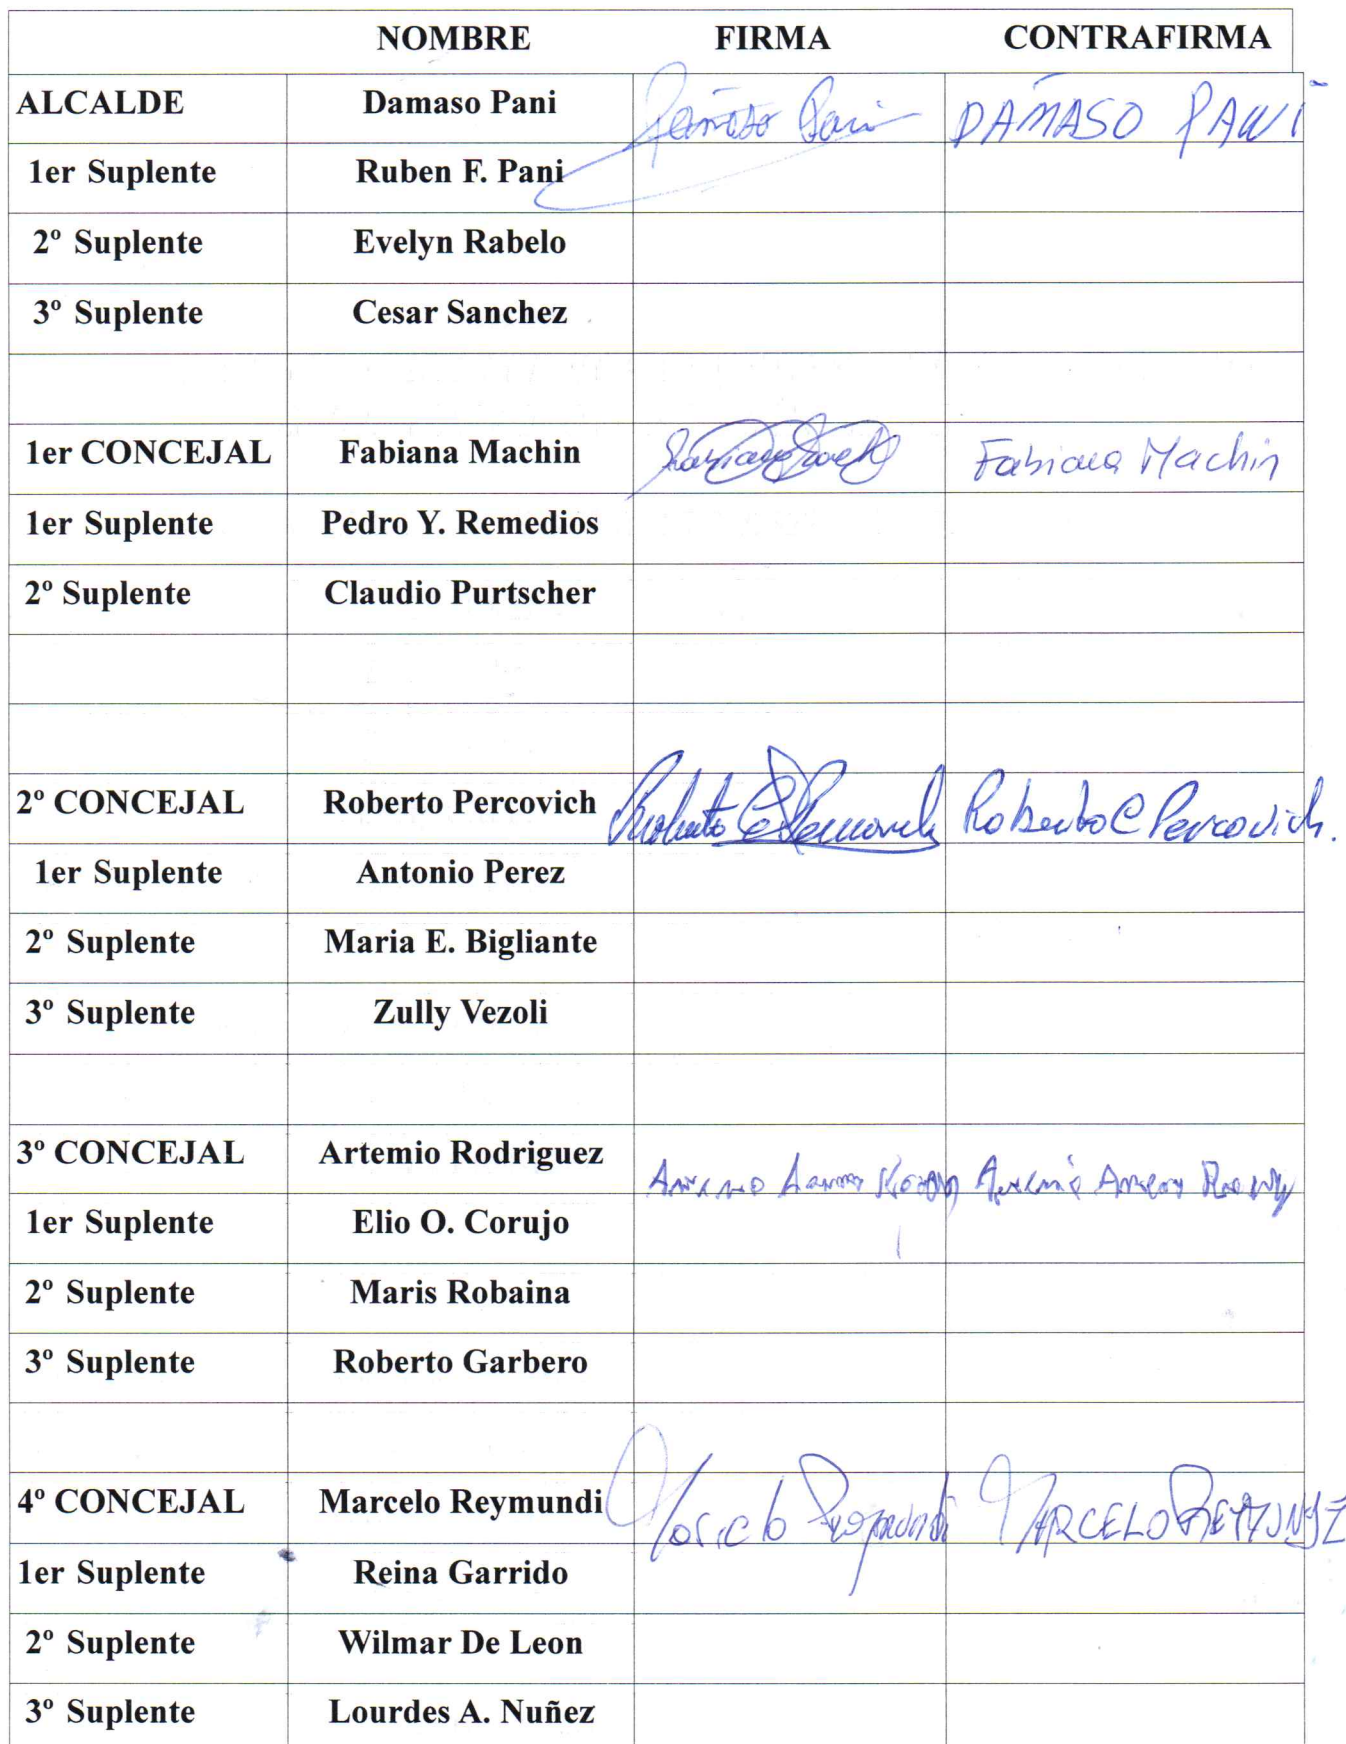 NOMBRE FIRMA CONTRAFIRMA
ALCALDE Damaso Pani Damaso Pani DAMASO PANI
1er Suplente Ruben F. Pani
2º Suplente Evelyn Rabelo
3º Suplente Cesar Sanchez
1er CONCEJAL Fabiana Machin Fabiana Machin
1er Suplente Pedro Y. Remedios
2º Suplente Claudio Purtscher
2º CONCEJAL Roberto Percovich Roberto C Percovich Roberto C Percovich.
1er Suplente Antonio Perez
2º Suplente Maria E. Bigliante
3º Suplente Zully Vezoli
3º CONCEJAL Artemio Rodriguez
1er Suplente Elio O. Corujo
2º Suplente Maris Robaina
3º Suplente Roberto Garbero
4º CONCEJAL Marcelo Reymundi Marcelo Reymundi MARCELO
1er Suplente Reina Garrido
2º Suplente Wilmar De Leon
3º Suplente Lourdes A. Nuñez